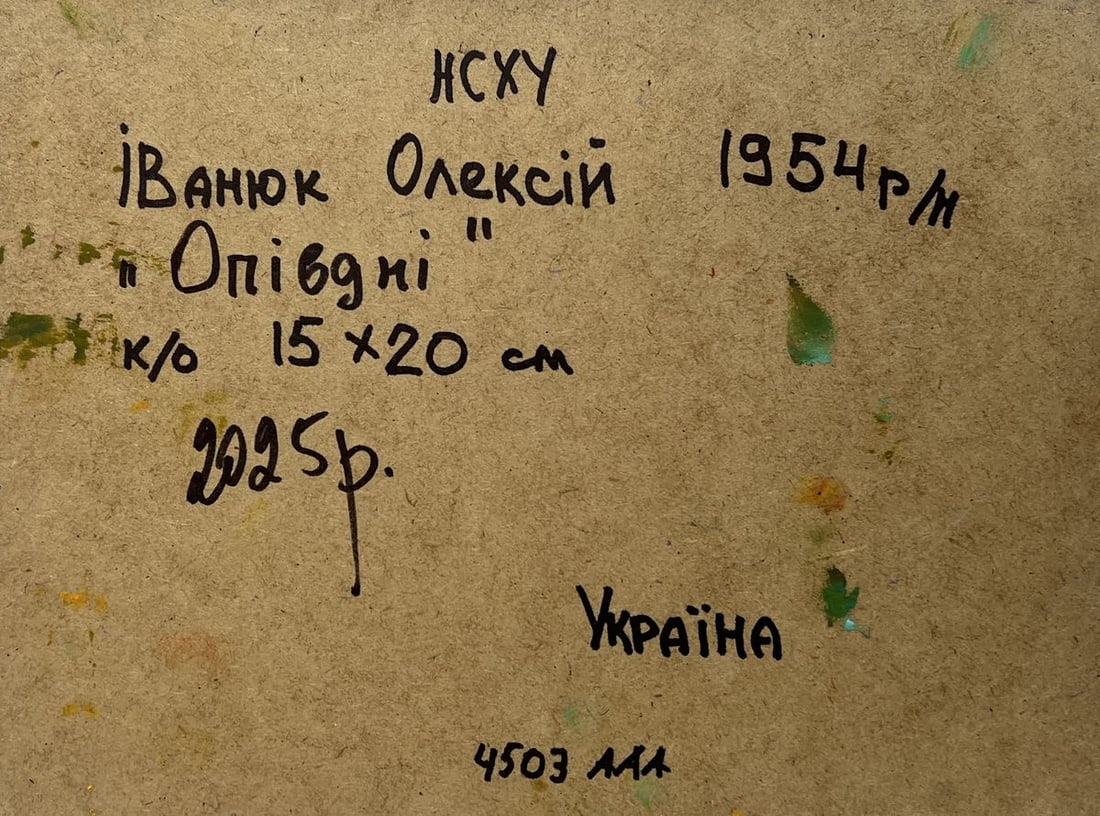 НСХУ
Іванюк Олексій 1954 р/н
„Опівдні"
к/о 15×20 см
2025р.
Україна
4503 ААА